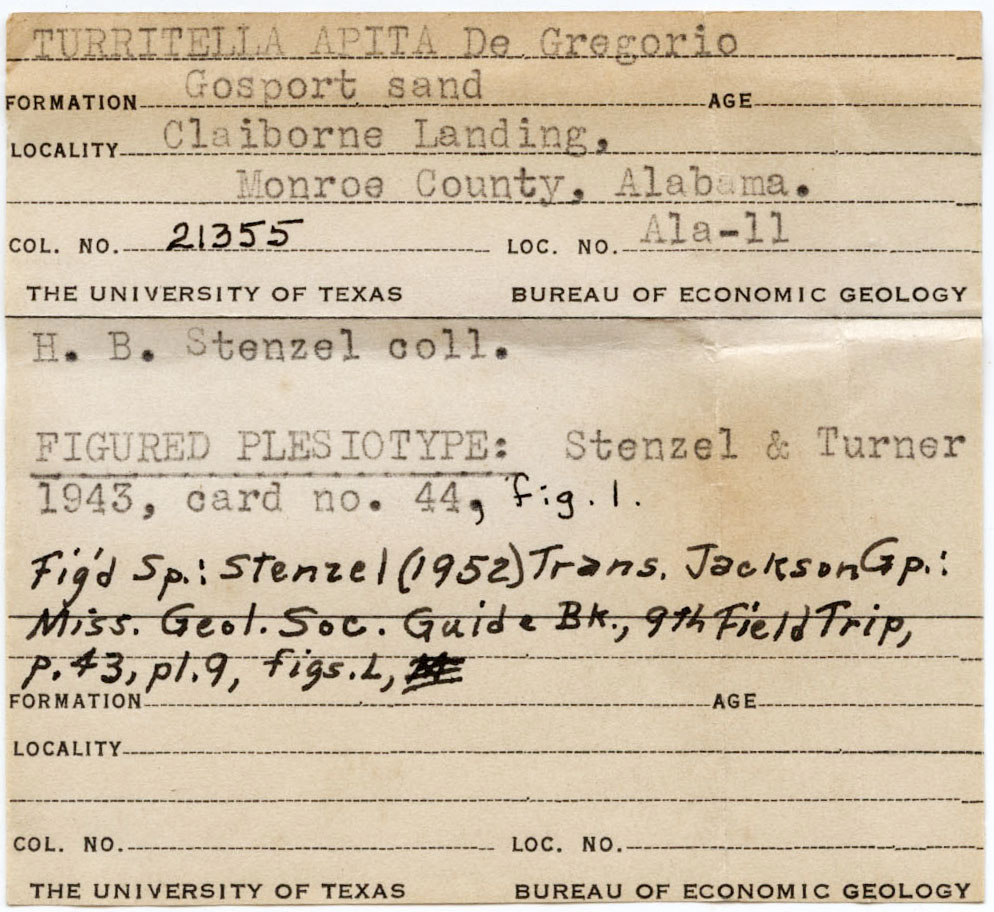 TURRITELLA APITA De Gregorio
FORMATION Gosport sand AGE
LOCALITY Claiborne Landing,
Monroe County, Alabama.
COL. NO. 21355 LOC. NO. Ala-11
THE UNIVERSITY OF TEXAS BUREAU OF ECONOMIC GEOLOGY
H. B. Stenzel coll.
FIGURED PLESIOTYPE: Stenzel & Turner
1943, card no. 44, fig. 1.
Fig'd Sp.: Stenzel (1952) Trans. Jackson Gp.:
Miss. Geol. Soc. Guide Bk., 9th Field Trip,
p. 43, pl. 9, figs. L,
FORMATION AGE
LOCALITY
COL. NO. LOC. NO.
THE UNIVERSITY OF TEXAS BUREAU OF ECONOMIC GEOLOGY